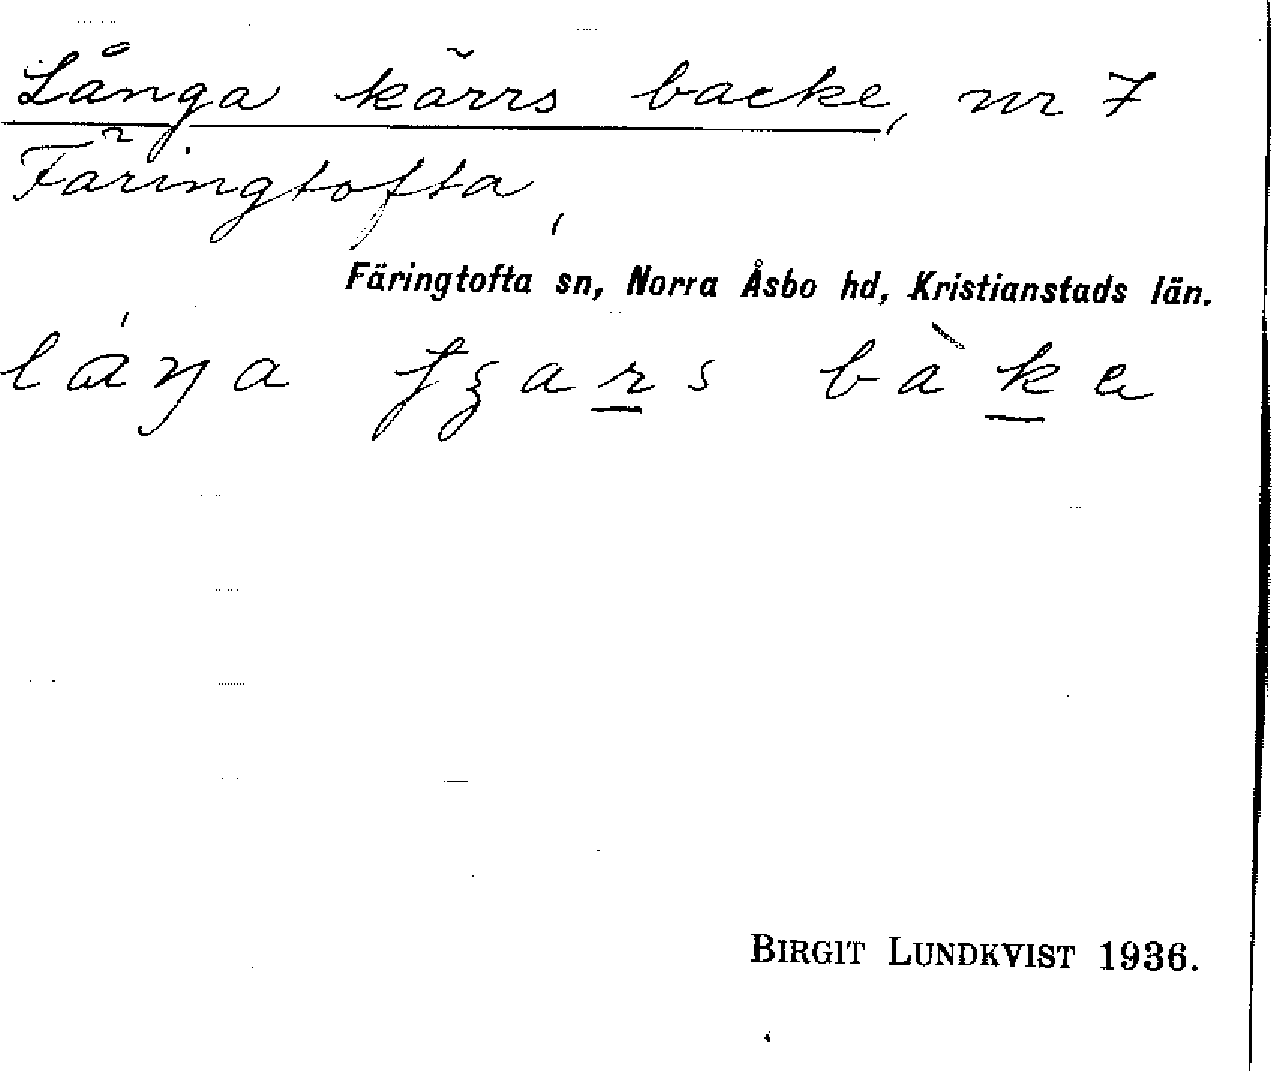 Långa kärrs backe, nr 7
Färingtofta,
Färingtofta sn, Norra Åsbo hd, Kristianstads län.
BIRGIT LUNDKVIST 1936.